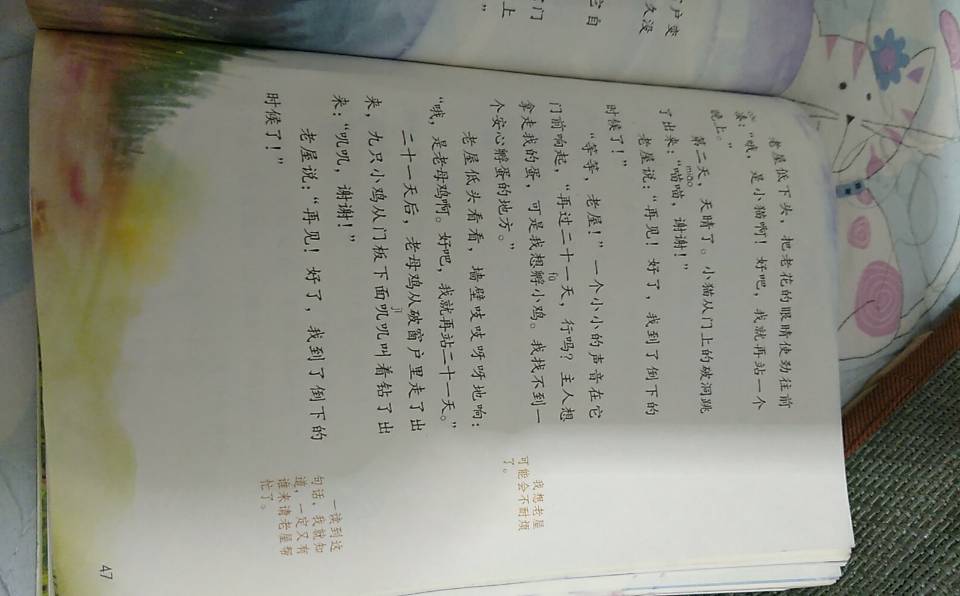 户变
久没
它自
门
上
”
老屋低下头，把老花的眼睛使劲往前
凑：“哦，是小猫啊！好吧，我就再站一个
晚上。”
第二天，天晴了。小猫从门上的破洞跳
miāo
了出来：“喵喵，谢谢！”
老屋说：“再见！好了，我到了倒下的
时候了！”
“等等，老屋！”一个小小的声音在它
门前响起，“再过二十一天，行吗？主人想
fū
拿走我的蛋，可是我想孵小鸡。我找不到一
个安心孵蛋的地方。”
老屋低头看看，墙壁吱吱呀呀地响：
“哦，是老母鸡啊。好吧，我就再站二十一天。”
二十一天后，老母鸡从破窗户里走了出
jī
来，九只小鸡从门板下面叽叽叫着钻了出
来：“叽叽，谢谢！”
老屋说：“再见！好了，我到了倒下的
时候了！”
我想老屋
可能会不耐烦
了。
一读到这
句话，我就知
道，一定又有
谁来请老屋帮
忙了。
47